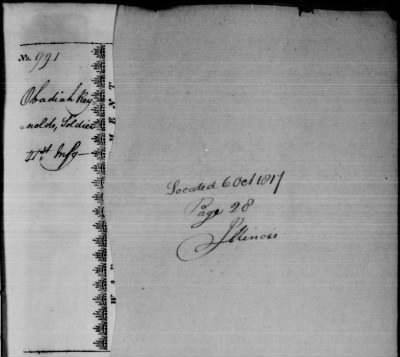 No. 991
Obadiah Rey
=nolds, Soldier
21st Infy
MENT
Located 6 Oct 1817
Page 28
Illinois